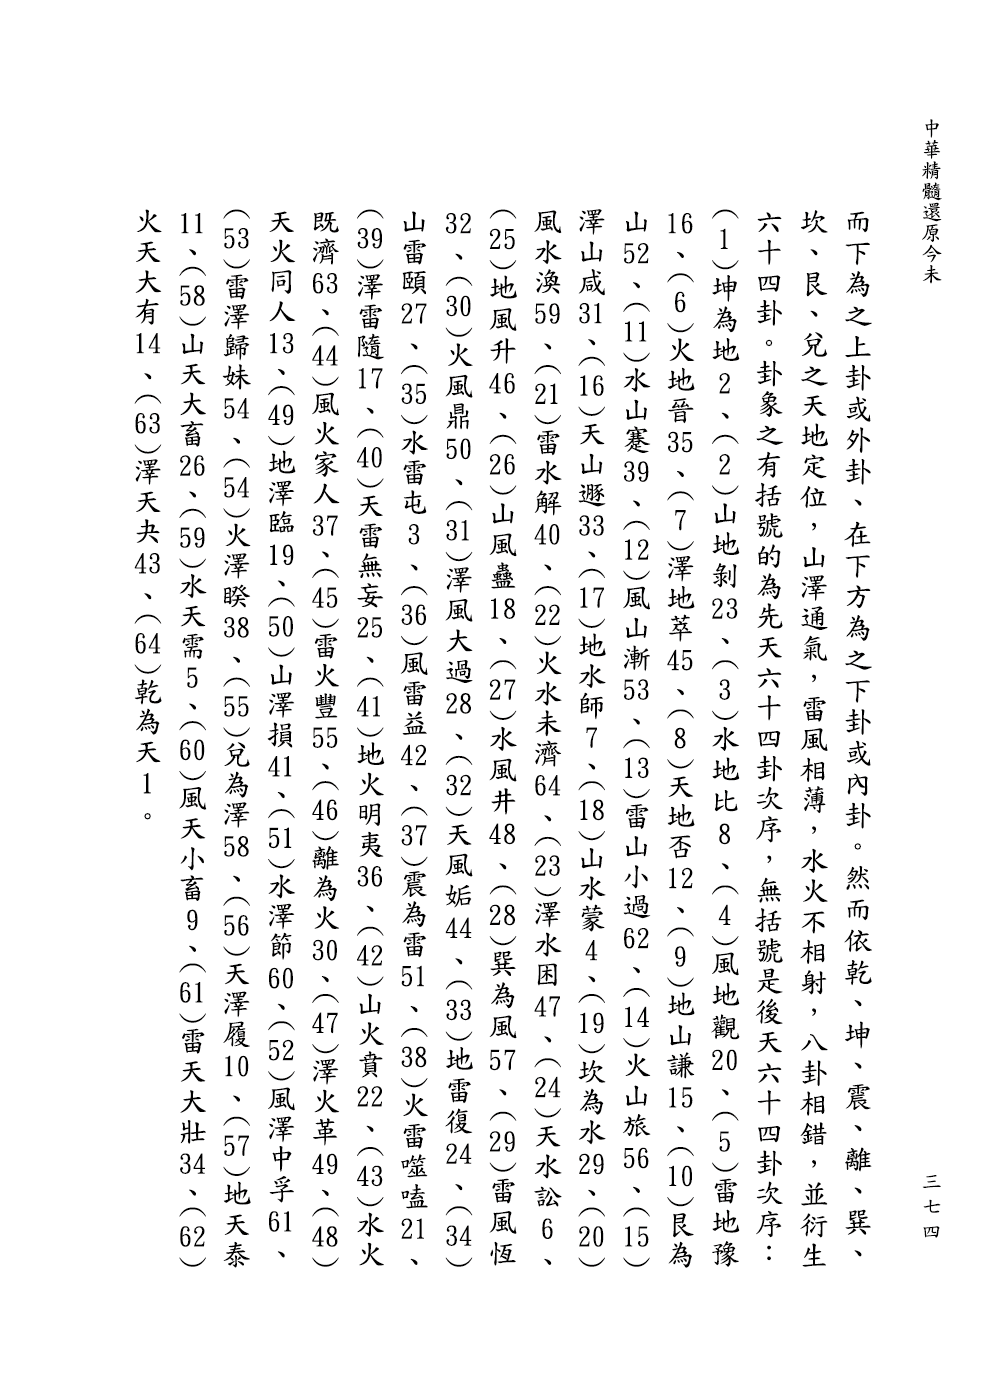 中華精髓還原今未
三七四
而下為之上卦或外卦、在下方為之下卦或內卦。然而依乾、坤、震、離、巽、
坎、艮、兌之天地定位，山澤通氣，雷風相薄，水火不相射，八卦相錯，並衍生
六十四卦。卦象之有括號的為先天六十四卦次序，無括號是後天六十四卦次序：
（1）坤為地2、（2）山地剝23、（3）水地比8、（4）風地觀20、（5）雷地豫
16、（6）火地晉35、（7）澤地萃45、（8）天地否12、（9）地山謙15、（10）艮為
山52、（11）水山蹇39、（12）風山漸53、（13）雷山小過62、（14）火山旅56、（15）
澤山咸31、（16）天山遯33、（17）地水師7、（18）山水蒙4、（19）坎為水29、（20）
風水渙59、（21）雷水解40、（22）火水未濟64、（23）澤水困47、（24）天水訟6、
（25）地風升46、（26）山風蠱18、（27）水風井48、（28）巽為風57、（29）雷風恆
32、（30）火風鼎50、（31）澤風大過28、（32）天風姤44、（33）地雷復24、（34）
山雷頤27、（35）水雷屯3、（36）風雷益42、（37）震為雷51、（38）火雷噬嗑21、
（39）澤雷隨17、（40）天雷無妄25、（41）地火明夷36、（42）山火賁22、（43）水火
既濟63、（44）風火家人37、（45）雷火豐55、（46）離為火30、（47）澤火革49、（48）
天火同人13、（49）地澤臨19、（50）山澤損41、（51）水澤節60、（52）風澤中孚61、
（53）雷澤歸妹54、（54）火澤睽38、（55）兌為澤58、（56）天澤履10、（57）地天泰
11、（58）山天大畜26、（59）水天需5、（60）風天小畜9、（61）雷天大壯34、（62）
火天大有14、（63）澤天夬43、（64）乾為天1。